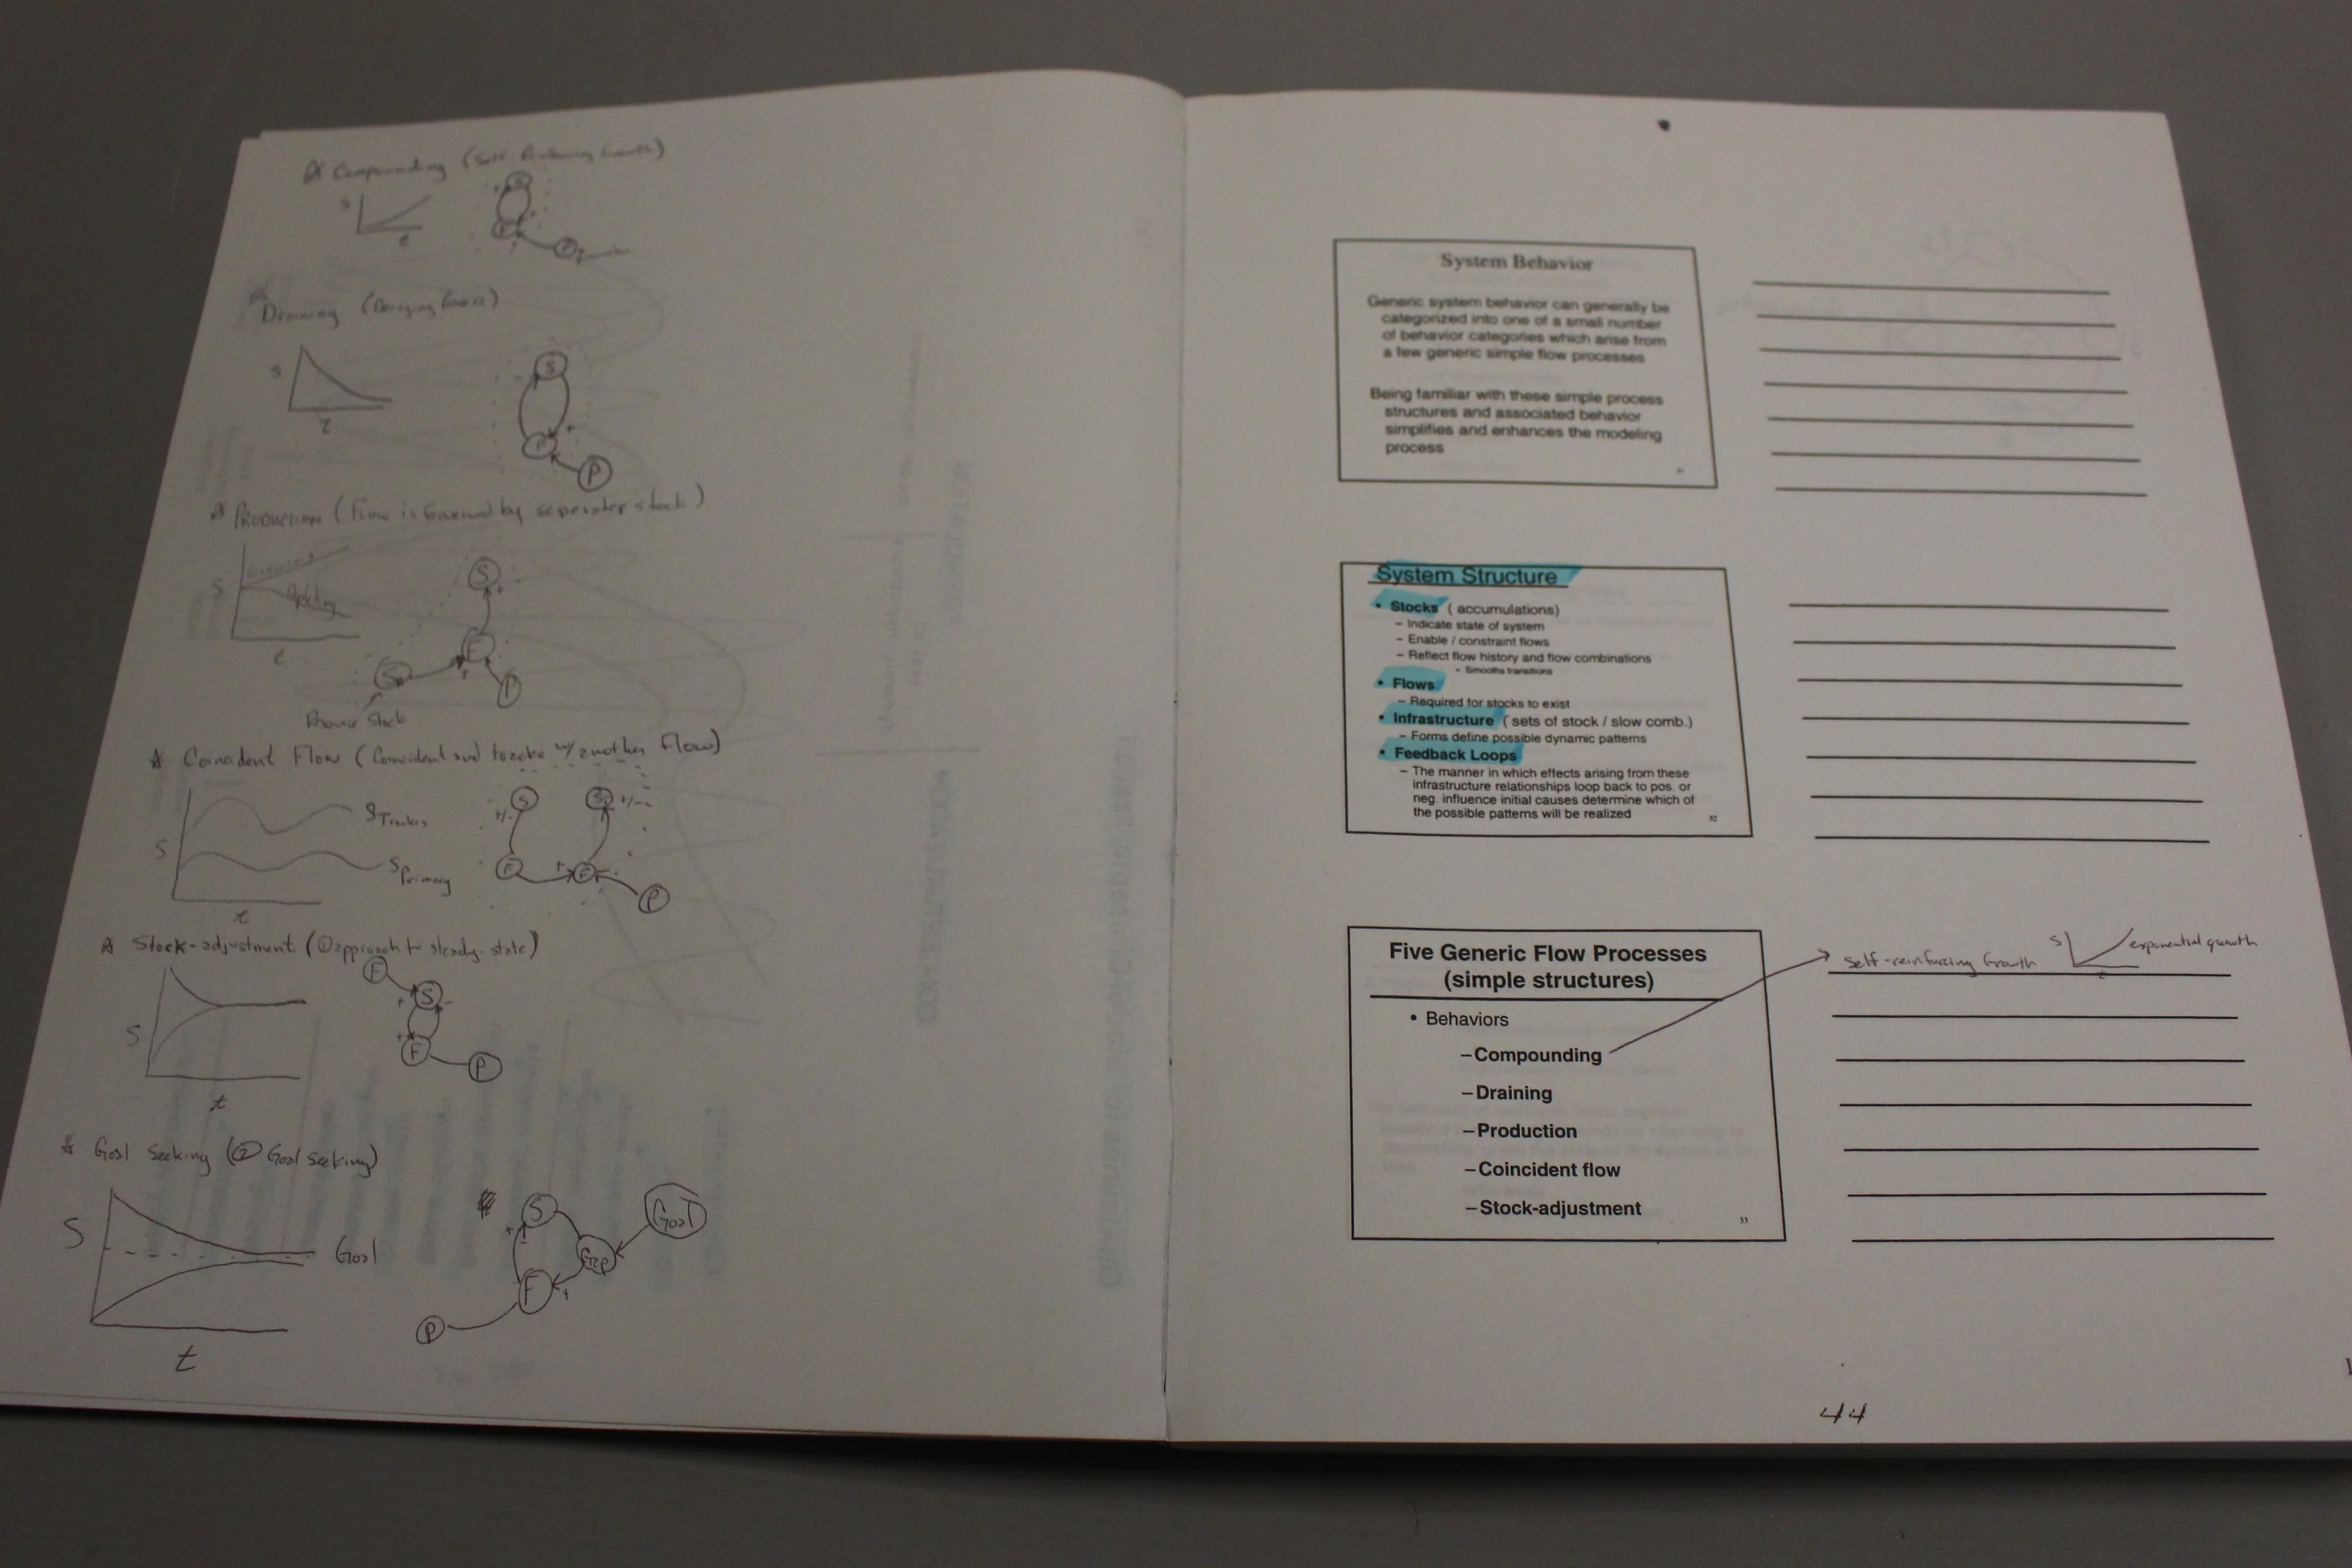 Compounding (Self-Reinforcing Growth)
S
t
S
F
P
Draining (Decaying
S
t
S
F
+
P
PRODUCTION (Flow is Governed by seperate stock)
S
t
S
+
F
+
P
Resource Stock
Coincident Flow (Coincident w/ another Flow)
S
t
S Tracks
S Primary
S
+/-
F
+
F
S
+/-
P
Stock-adjustment (① approach to steady-state)
S
t
F
S
+
-
+
F
P
Goal Seeking (② Goal Seeking)
S
Goal
t
S
+
-
Gap
Goal
F
+
P
System Behavior
Generic system behavior can generally be
categorized into one of a small number
of behavior categories which arise from
a few generic simple flow processes
Being familiar with these simple process
structures and associated behavior
simplifies and enhances the modeling
process
System Structure
• Stocks ( accumulations)
– Indicate state of system
– Enable / constraint flows
– Reflect flow history and flow combinations
- Smooths transitions
• Flows
– Required for stocks to exist
• Infrastructure ( sets of stock / slow comb.)
– Forms define possible dynamic patterns
• Feedback Loops
– The manner in which effects arising from these
infrastructure relationships loop back to pos. or
neg. influence initial causes determine which of
the possible patterns will be realized
32
Five Generic Flow Processes
(simple structures)
• Behaviors
– Compounding
– Draining
– Production
– Coincident flow
– Stock-adjustment
33
Self-reinforcing Growth
S
t
exponential growth
44